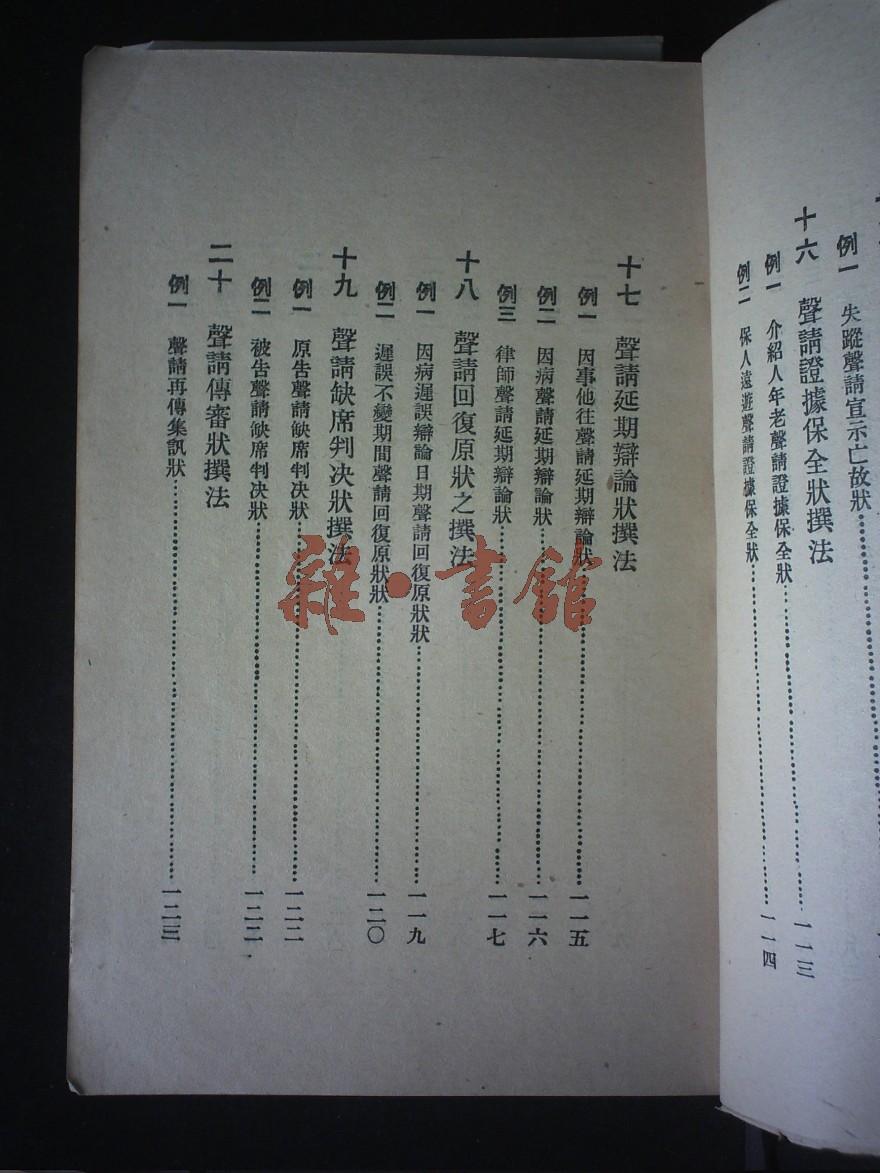 例一 失蹤聲請宣示亡故狀
十六 聲請證據保全狀撰法
例一 介紹人年老聲請證據保全狀……一一三
例二 保人遠遊聲請證據保全狀……一一四
十七 聲請延期辯論狀撰法
例一 因事他往聲請延期辯論狀……一一五
例二 因病聲請延期辯論狀……一一六
例三 律師聲請延期辯論狀……一一七
十八 聲請回復原狀之撰法
例一 因病遲誤辯論日期聲請回復原狀狀……一一九
例二 遲誤不變期間聲請回復原狀狀……一二〇
十九 聲請缺席判决狀撰法
例一 原告聲請缺席判决狀……一二二
例二 被告聲請缺席判决狀……一二二
二十 聲請傳審狀撰法
例一 聲請再傳集訊狀……一二三
雜·書館